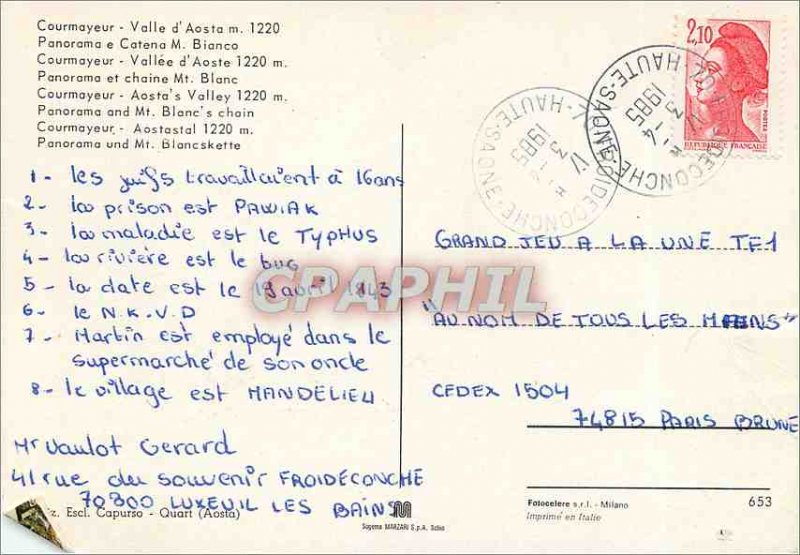 Courmayeur - Valle d'Aosta m. 1220
Panorama e Catena M. Bianco
Courmayeur - Vallée d'Aoste 1220 m.
Panorama et chaine Mt. Blanc
Courmayeur - Aosta's Valley 1220 m.
Panorama and Mt. Blanc's chain
Courmayeur - Aostastal 1220 m.
Panorama und Mt. Blancskette
1 - les juifs travaillaient à 16 ans
2 - la prison est PAWIAK
3 - la maladie est le TYPHUS
4 - la rivière est le bug
5 - la date est le 19 avril 1943
6 - le N.K.V.D
7 - Martin est employé dans le
supermarché de son oncle
8 - le village est MANDELIEU
Mr Vaulot Gerard
41 rue du souvenir FROIDECONCHE
70300 LUXEUIL LES BAINS
Escl. Capurso - Quart (Aosta)
2,10
POSTES
REPUBLIQUE FRANÇAISE
FROIDECONCHE
HAUTE-SAONE
1985
HAUTE-SAONE
1985
GRAND JEU A LA UNE TF1
"AU NOM DE TOUS LES MIENS"
CEDEX 1504
74815 PARIS BRUNE
CPAPHIL
M
Sogema MARZARI S.p.A. Schio
Fotocelere s.r.l. - Milano
653
Imprimé en Italie